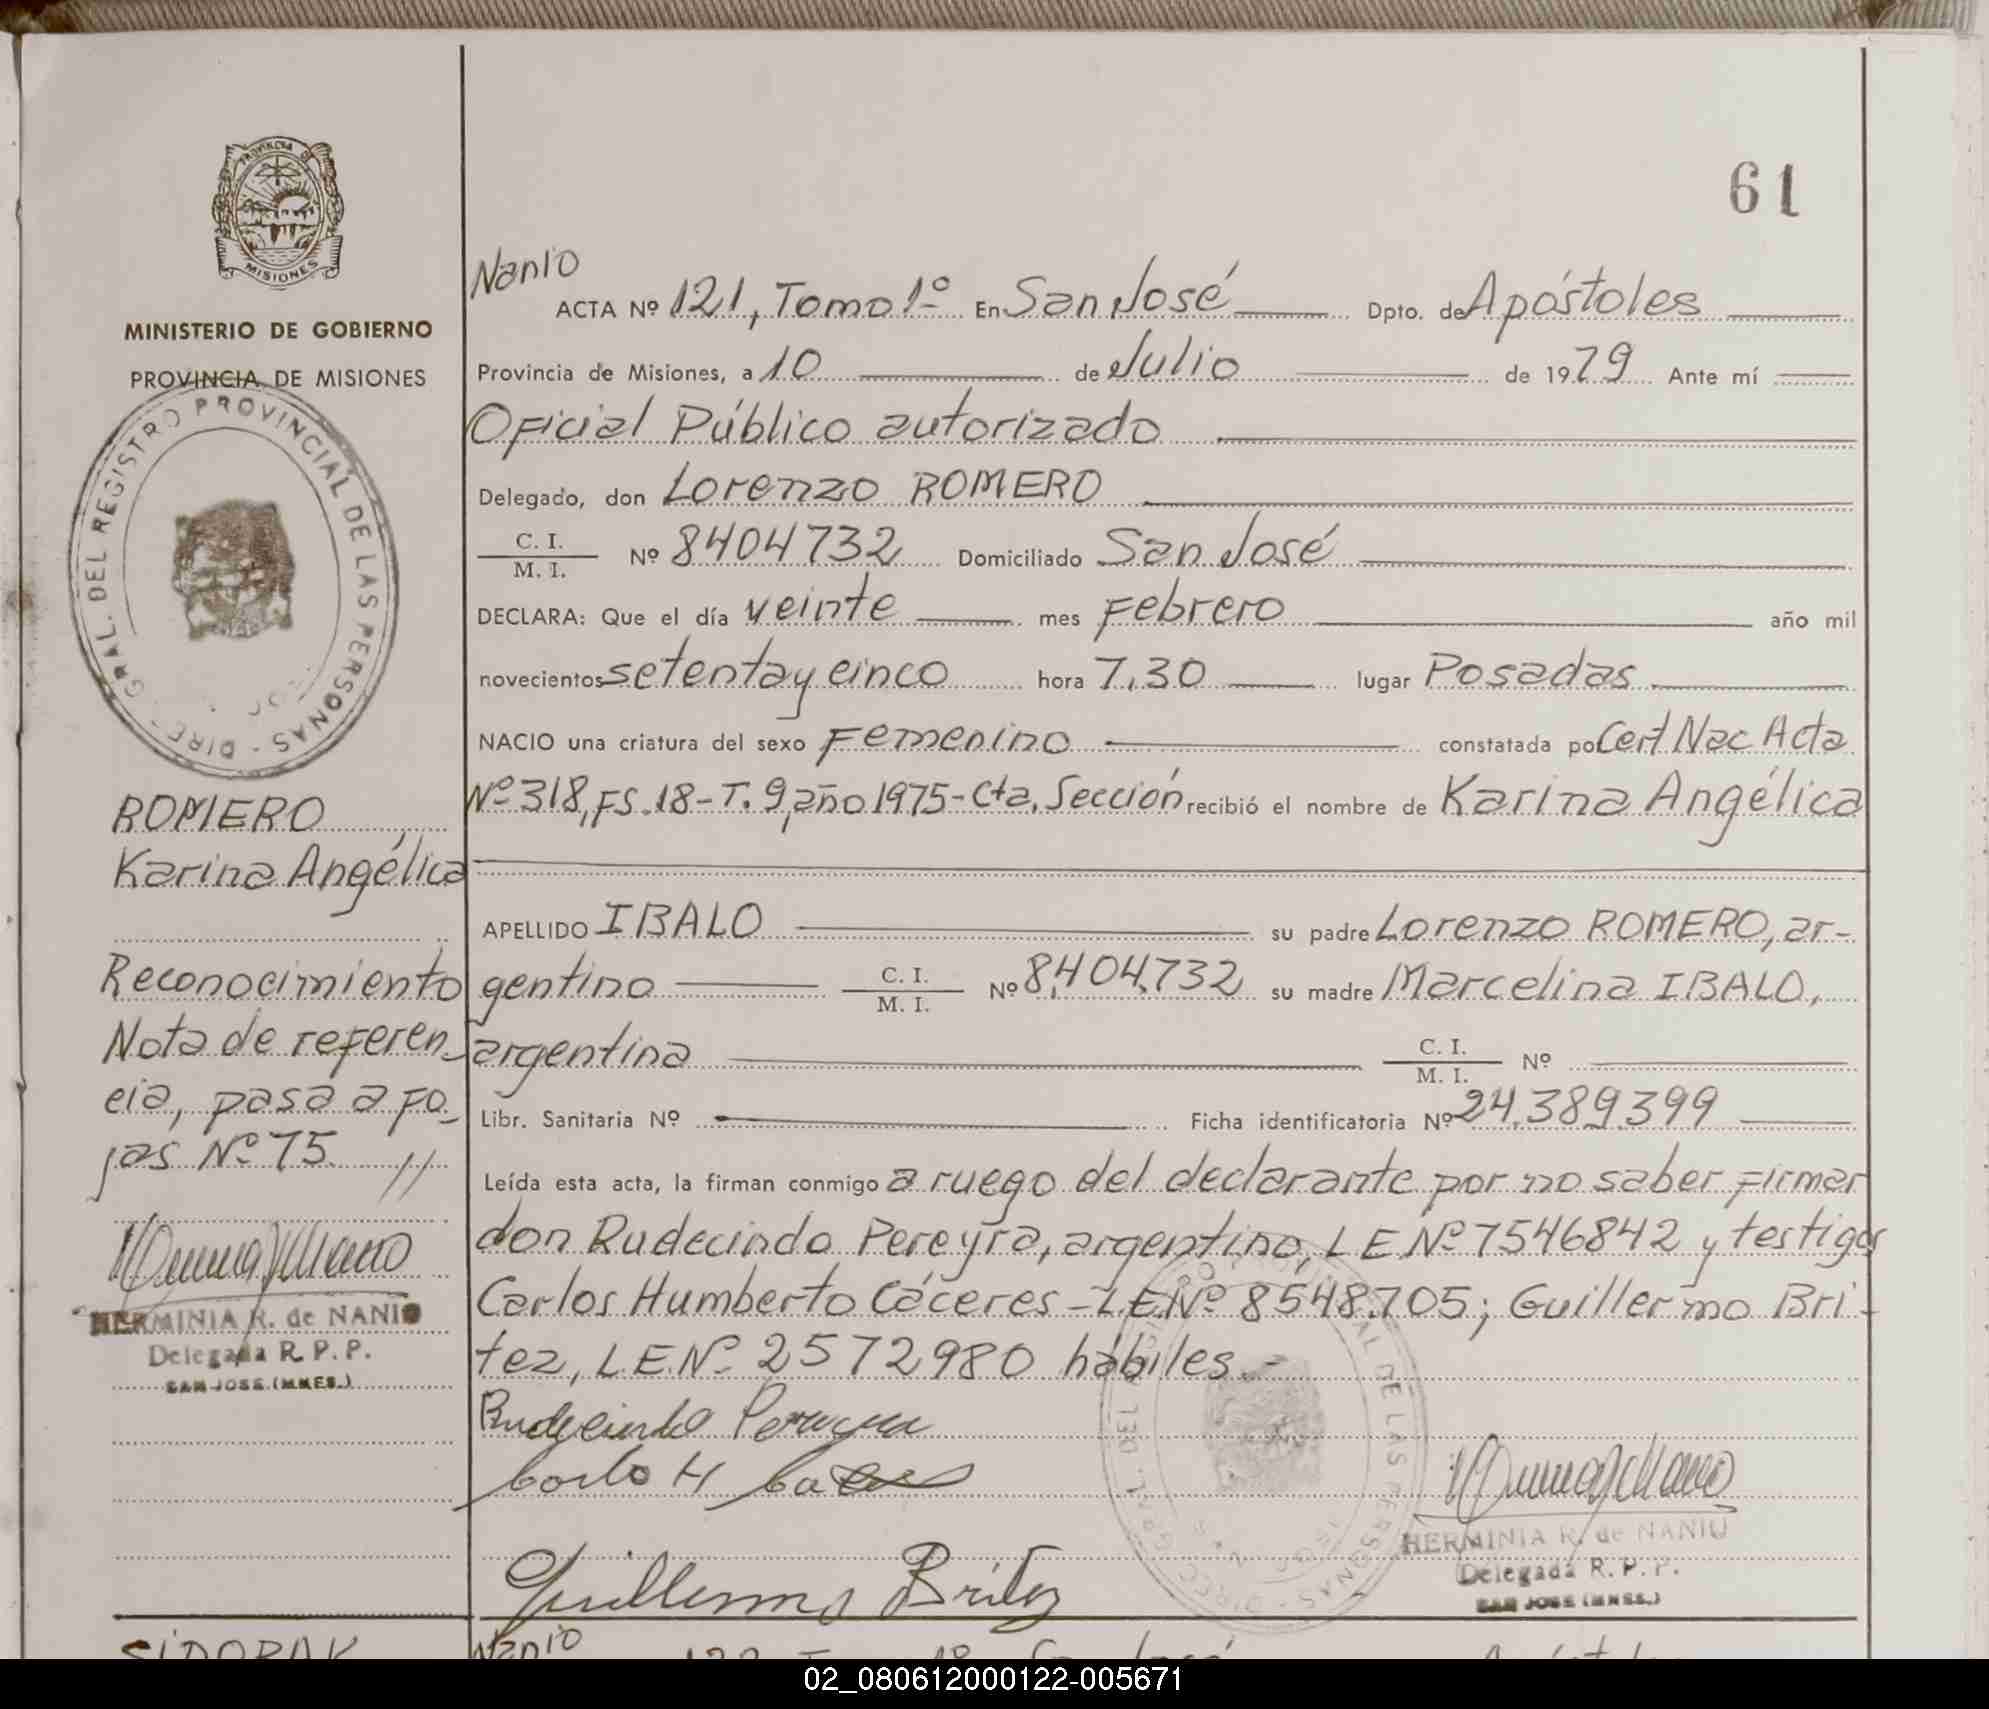 61
PROVINCIA DE
MISIONES
MINISTERIO DE GOBIERNO
PROVINCIA DE MISIONES
GRAL. DEL REGISTRO PROVINCIAL DE LAS PERSONAS - DIREC
ROMERO
Karina Angélica
Reconocimiento
Nota de referen-
cia, pasa a fo-
jas Nº 75 //
HERMINIA R. de NANIO
Delegada R. P. P.
SAN JOSE (MNES.)
SIDORAK
Nanio
ACTA Nº 121, Tomo 1º En San José Dpto. de Apóstoles
Provincia de Misiones, a 10 de Julio de 1979 Ante mí
Oficial Público autorizado
Delegado, don Lorenzo ROMERO
C. I.
M. I. Nº 8404732 Domiciliado San José
DECLARA: Que el día veinte mes Febrero año mil
novecientos setenta y cinco hora 7.30 lugar Posadas
NACIO una criatura del sexo Femenino constatada por Cert Nac Acta
Nº 318, FS. 18 - T. 9, año 1975 - Cta. Sección recibió el nombre de Karina Angélica
APELLIDO IBALO su padre Lorenzo ROMERO, ar-
gentino C. I.
M. I. Nº 8.404.732 su madre Marcelina IBALO,
argentina C. I.
M. I. Nº
Libr. Sanitaria Nº Ficha identificatoria Nº 24.389.399
Leída esta acta, la firman conmigo a ruego del declarante por no saber firmar
don Rudecindo Pereyra, argentino, LE Nº 7546842 y testigos
Carlos Humberto Cáceres - LE.Nº 8548.705; Guillermo Bri-
tez, LE Nº 2572980 hábiles.-
Rudecindo Pereyra
Carlo H Caceres
Guillermo Britez
DIREC. GRAL. DEL REGISTRO PROVINCIAL DE LAS PERSONAS
HERMINIA R. de NANIO
Delegada R. P. P.
SAN JOSE (MNES.)
Nanio
122
02_080612000122-005671